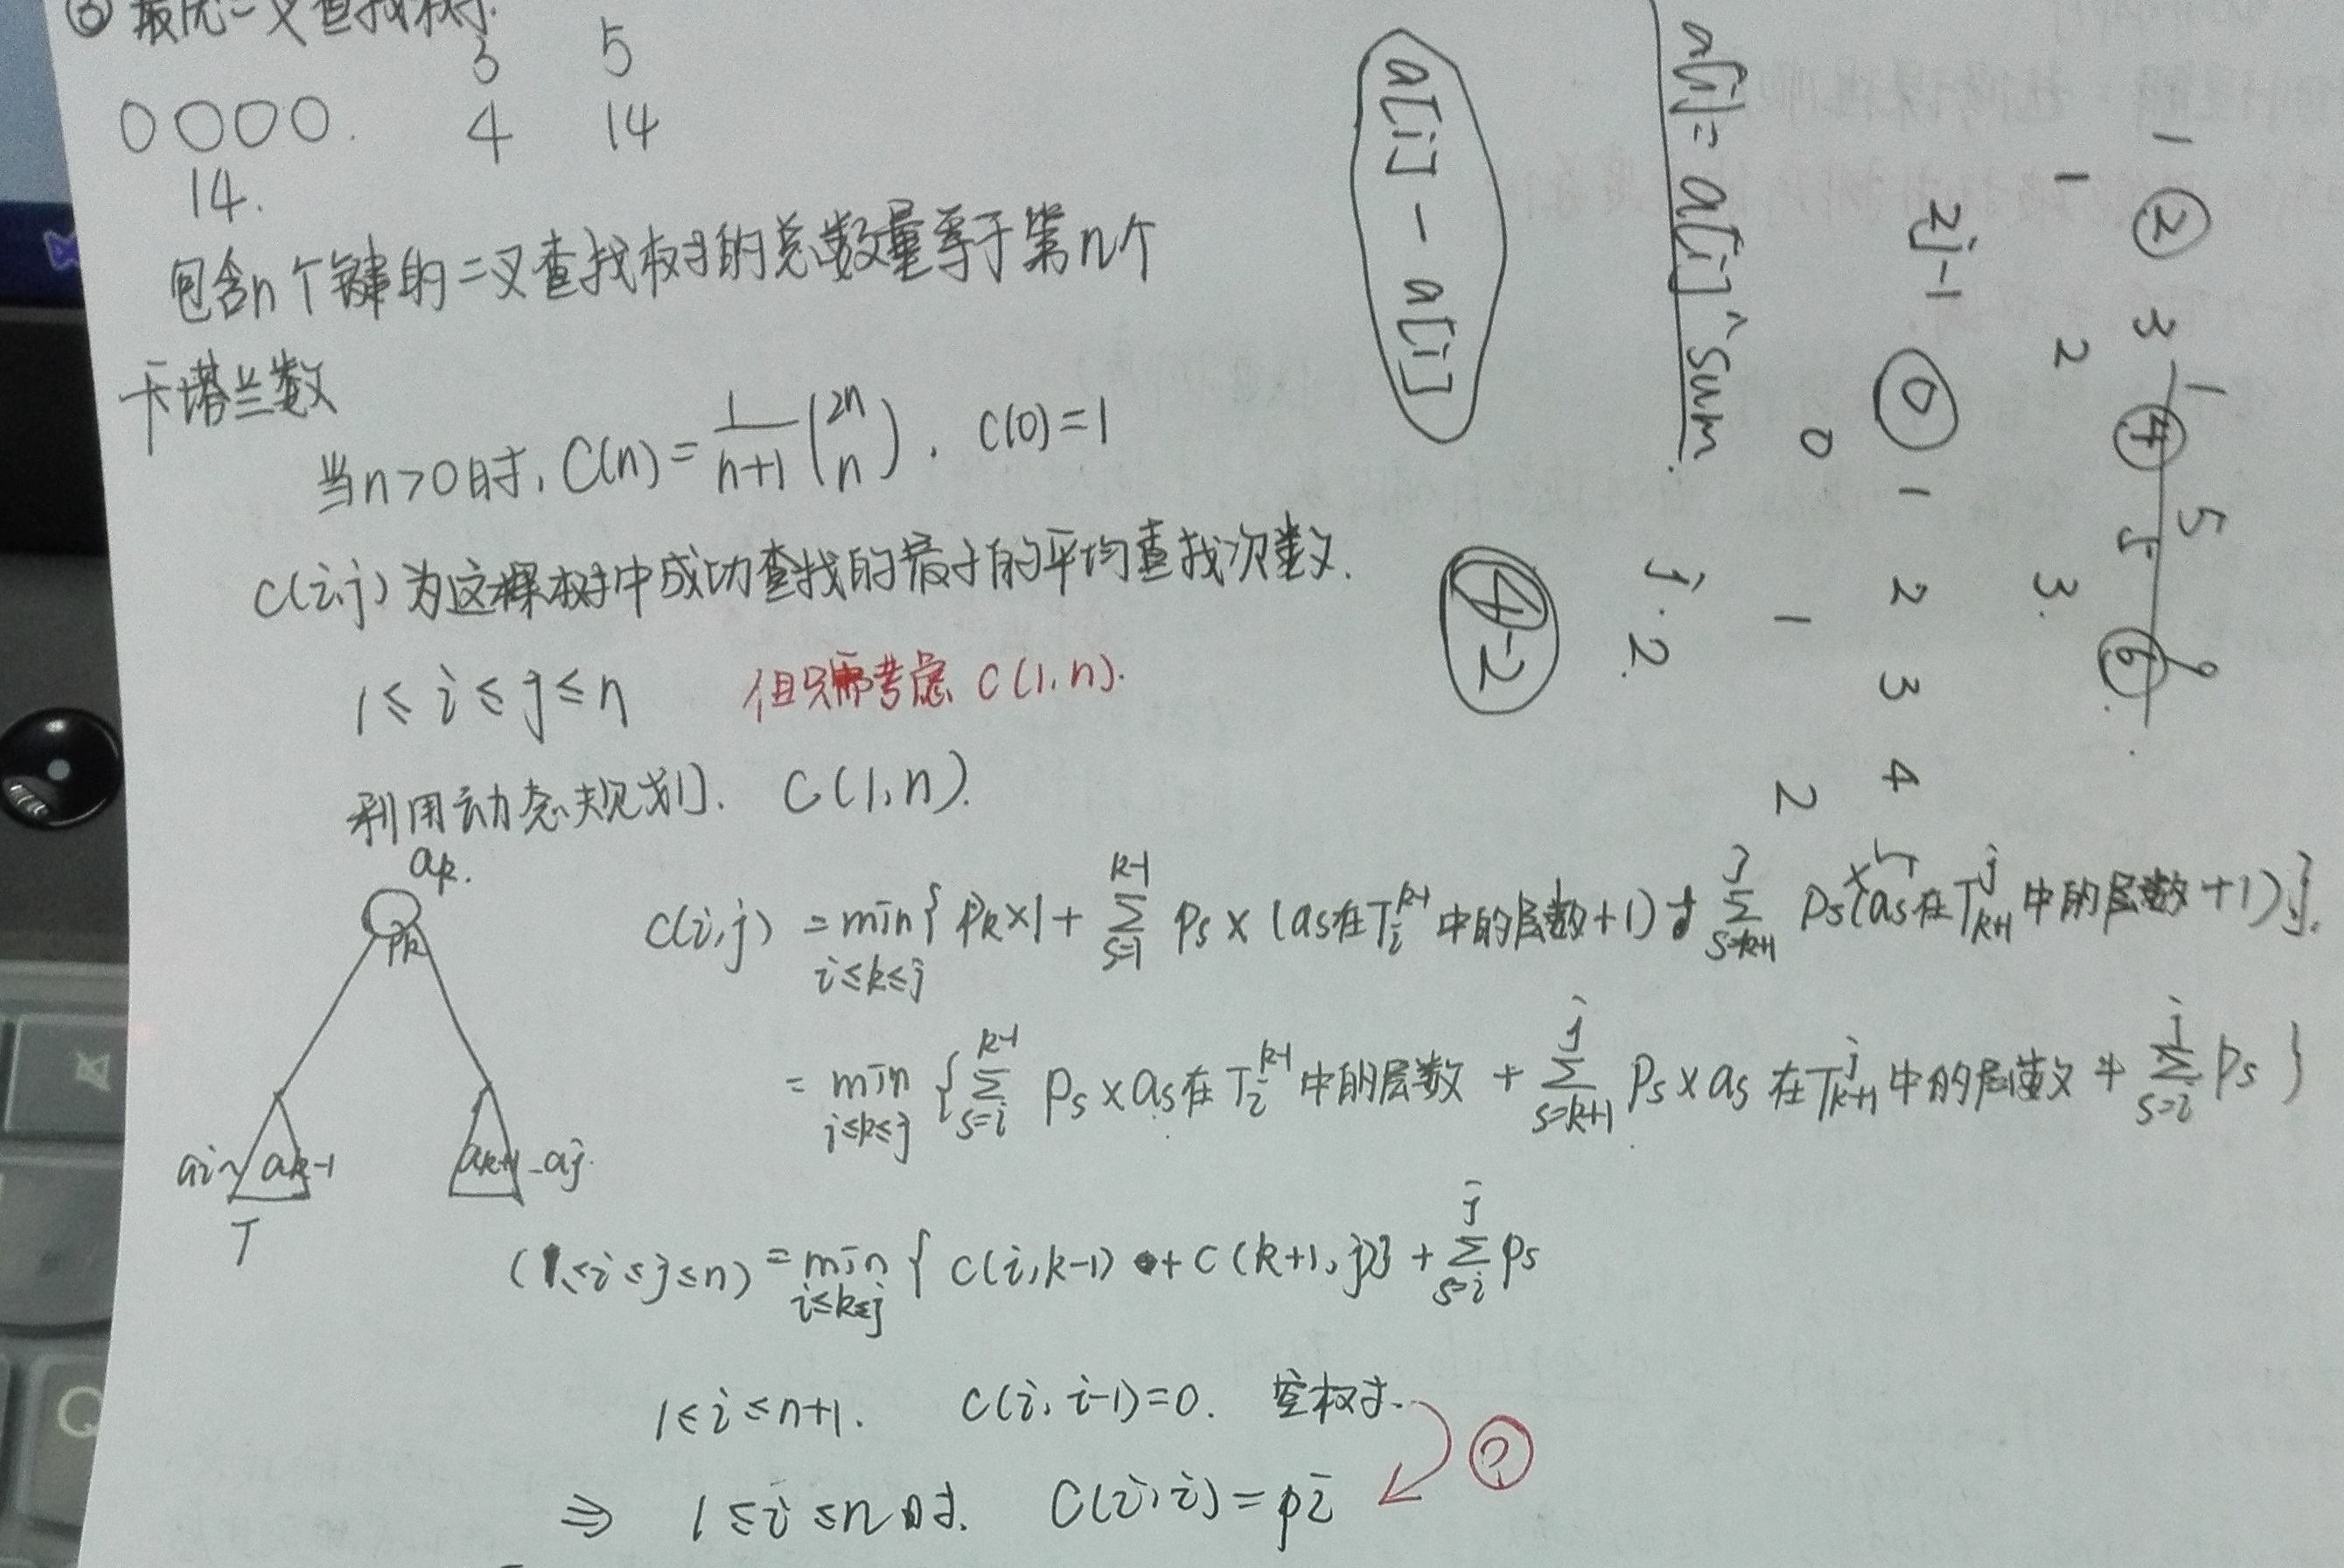 ③ 最优二叉查找树.
3 5
○○○○. 4 14
14.
包含n个键的二叉查找树的总数量等于第n个
卡塔兰数
当n>0时, C(n) = \frac{1}{n+1} \binom{2n}{n}, C(0)=1
C(i,j) 为这棵树中成功查找的最小的平均查找次数.
1 ≤ i ≤ j ≤ n 但只需考虑 C(1,n).
利用动态规划. C(1,n).
a_k.
p_k
C(i,j) = \min_{i≤k≤j} { p_k×1 + \sum_{s=1}^{k-1} p_s × (a_s在T_i^{k-1}中的层数+1) + \sum_{s=k+1}^{j} p_s×(a_s在T_{k+1}^{j}中的层数+1) }.
= \min_{i≤k≤j} { \sum_{s=i}^{k-1} p_s × a_s在T_i^{k-1}中的层数 + \sum_{s=k+1}^{j} p_s × a_s 在T_{k+1}^{j}中的层数 + \sum_{s=i}^{j} p_s }
a_i ~ a_{k-1} a_{k+1} - a_j.
T
(1≤i≤j≤n) = \min_{i≤k≤j} { C(i,k-1) + C(k+1,j)} + \sum_{s=i}^{j} p_s
1≤i≤n+1. C(i,i-1)=0. 空树.
?
⇒ 1≤i≤n时. C(i,i)=p_i
1 ② 3 ④ 5 ⑥
1 5 9
1 2 3.
2j-1 ⓪ 1 2 3 4
0 1 2
a[i] = a[i]^sum.
j·2.
a[i] - a[i]
4-2
Q